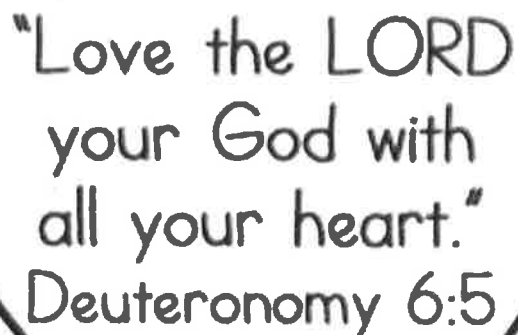 "Love the LORD
your God with
all your heart."
Deuteronomy 6:5